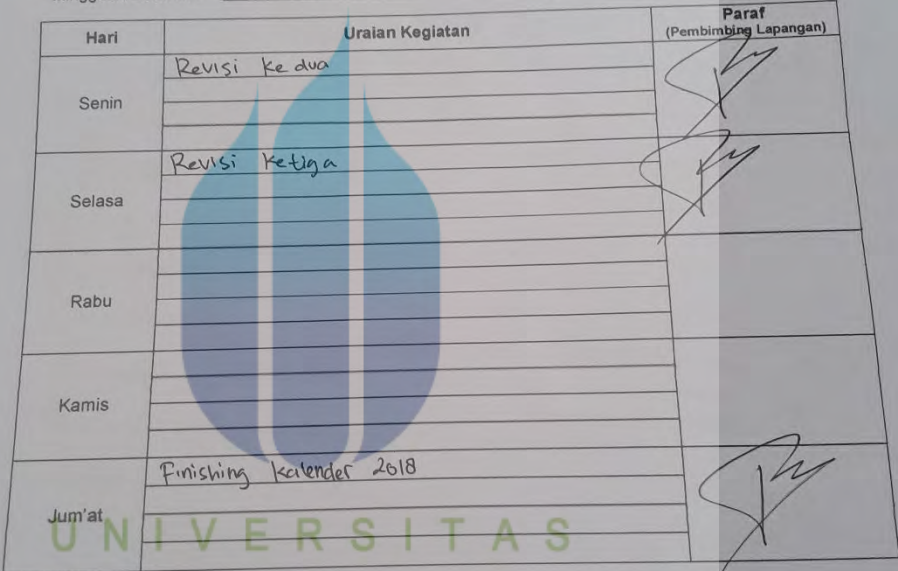 Hari Uraian Kegiatan Paraf
(Pembimbing Lapangan)
Senin
Revisi Ke dua
Selasa
Revisi Ketiga
Rabu
Kamis
Jum'at
Finishing Kalender 2018
UNIVERSITAS